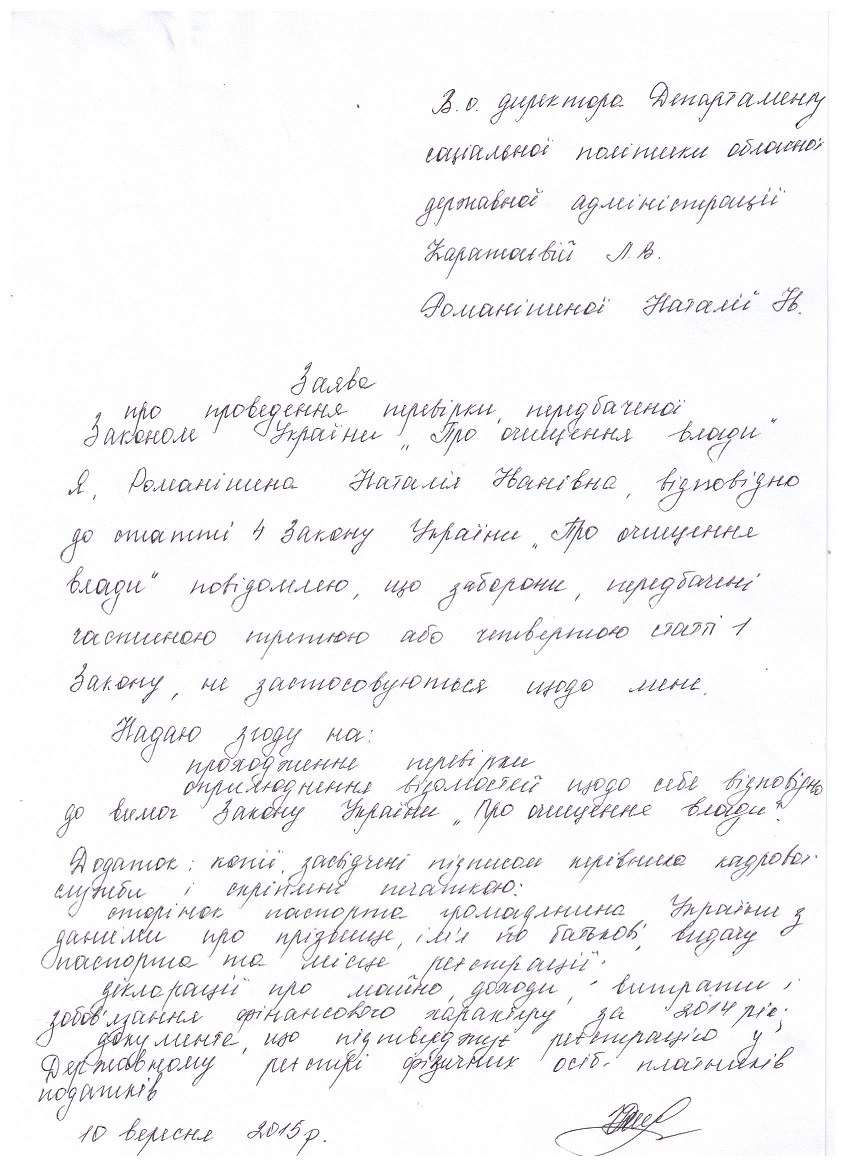 В.о. директора Департаменту
соціальної політики обласної
державної адміністрації
Каратаєвій Л.В.
Романішиної Наталії Ів.
Заява
про проведення перевірки, передбаченої
Законом України „Про очищення влади"
Я, Романішина Наталія Іванівна, відповідно
до статті 4 Закону України „Про очищення
влади" повідомляю, що заборони, передбачені
частиною третьою або четвертою статті 1
Закону, не застосовуються щодо мене.
Надаю згоду на:
проходження перевірки
оприлюднення відомостей щодо себе відповідно
до вимог Закону України „Про очищення влади".
Додаток: копії, засвідчені підписом керівника кадрової
служби і скріплені печаткою:
сторінок паспорта громадянина України з
даними про прізвище, ім'я по батькові, видачу
паспорта та місце реєстрації.
декларації про майно, доходи, витрати і
зобов'язання фінансового характеру за 2014 рік;
документа, що підтверджує реєстрацію у
Державному реєстрі фізичних осіб- платників
податків
10 вересня 2015р.